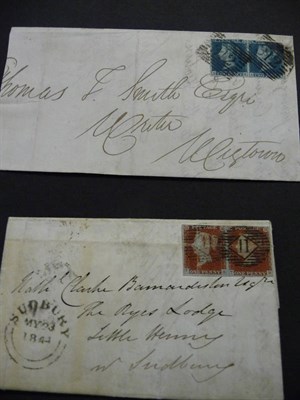 Thomas F. Smith Esqre
Writer
Wigtown
11
Clarke Barnardiston Esqre
The Ryes Lodge
Little Henny
nr Sudbury
SUDBURY
MY 23
1844